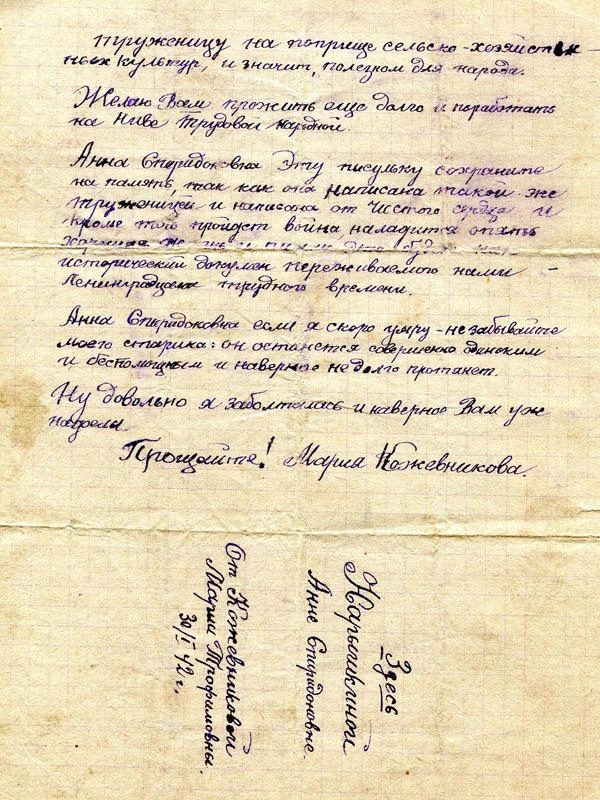 труженицу на поприще сельско-хозяйствен-
ных культур, и значит, полезном для народа.
Желаю Вам прожить еще долго и поработать
на Ниве трудовой народной.
Анна Спиридоновна Эту писульку сохраните
на память, так как она написана такой же
труженицей и написана от чистого сердца и
кроме того пройдет война наладится опять
исторический докумен переживаемого нами –
Ленинградцами трудного времени.
Анна Спиридоновна если я скоро умру - не забывайте
моего старика: он останется совершенно одиноким
и беспомощным и наверное не долго протянет.
Ну довольно я заболталась и наверное Вам уж
надоела.
Прощайте! Мария Кожевникова.
Здесь
Нарышкиной
Анне Спиридоновне.
От Кожевниковой
Марии Трофимовны.
30/I 42 г.